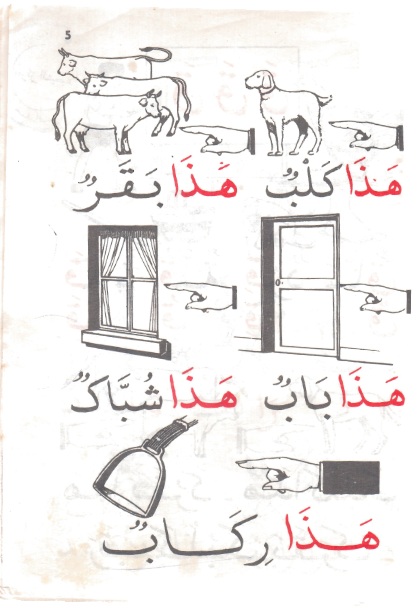 5
هَذَا كَلْبٌ هَذَا بَقَرٌ
هَذَا بَابٌ هَذَا شُبَّاكٌ
هَذَا رِكَابٌ